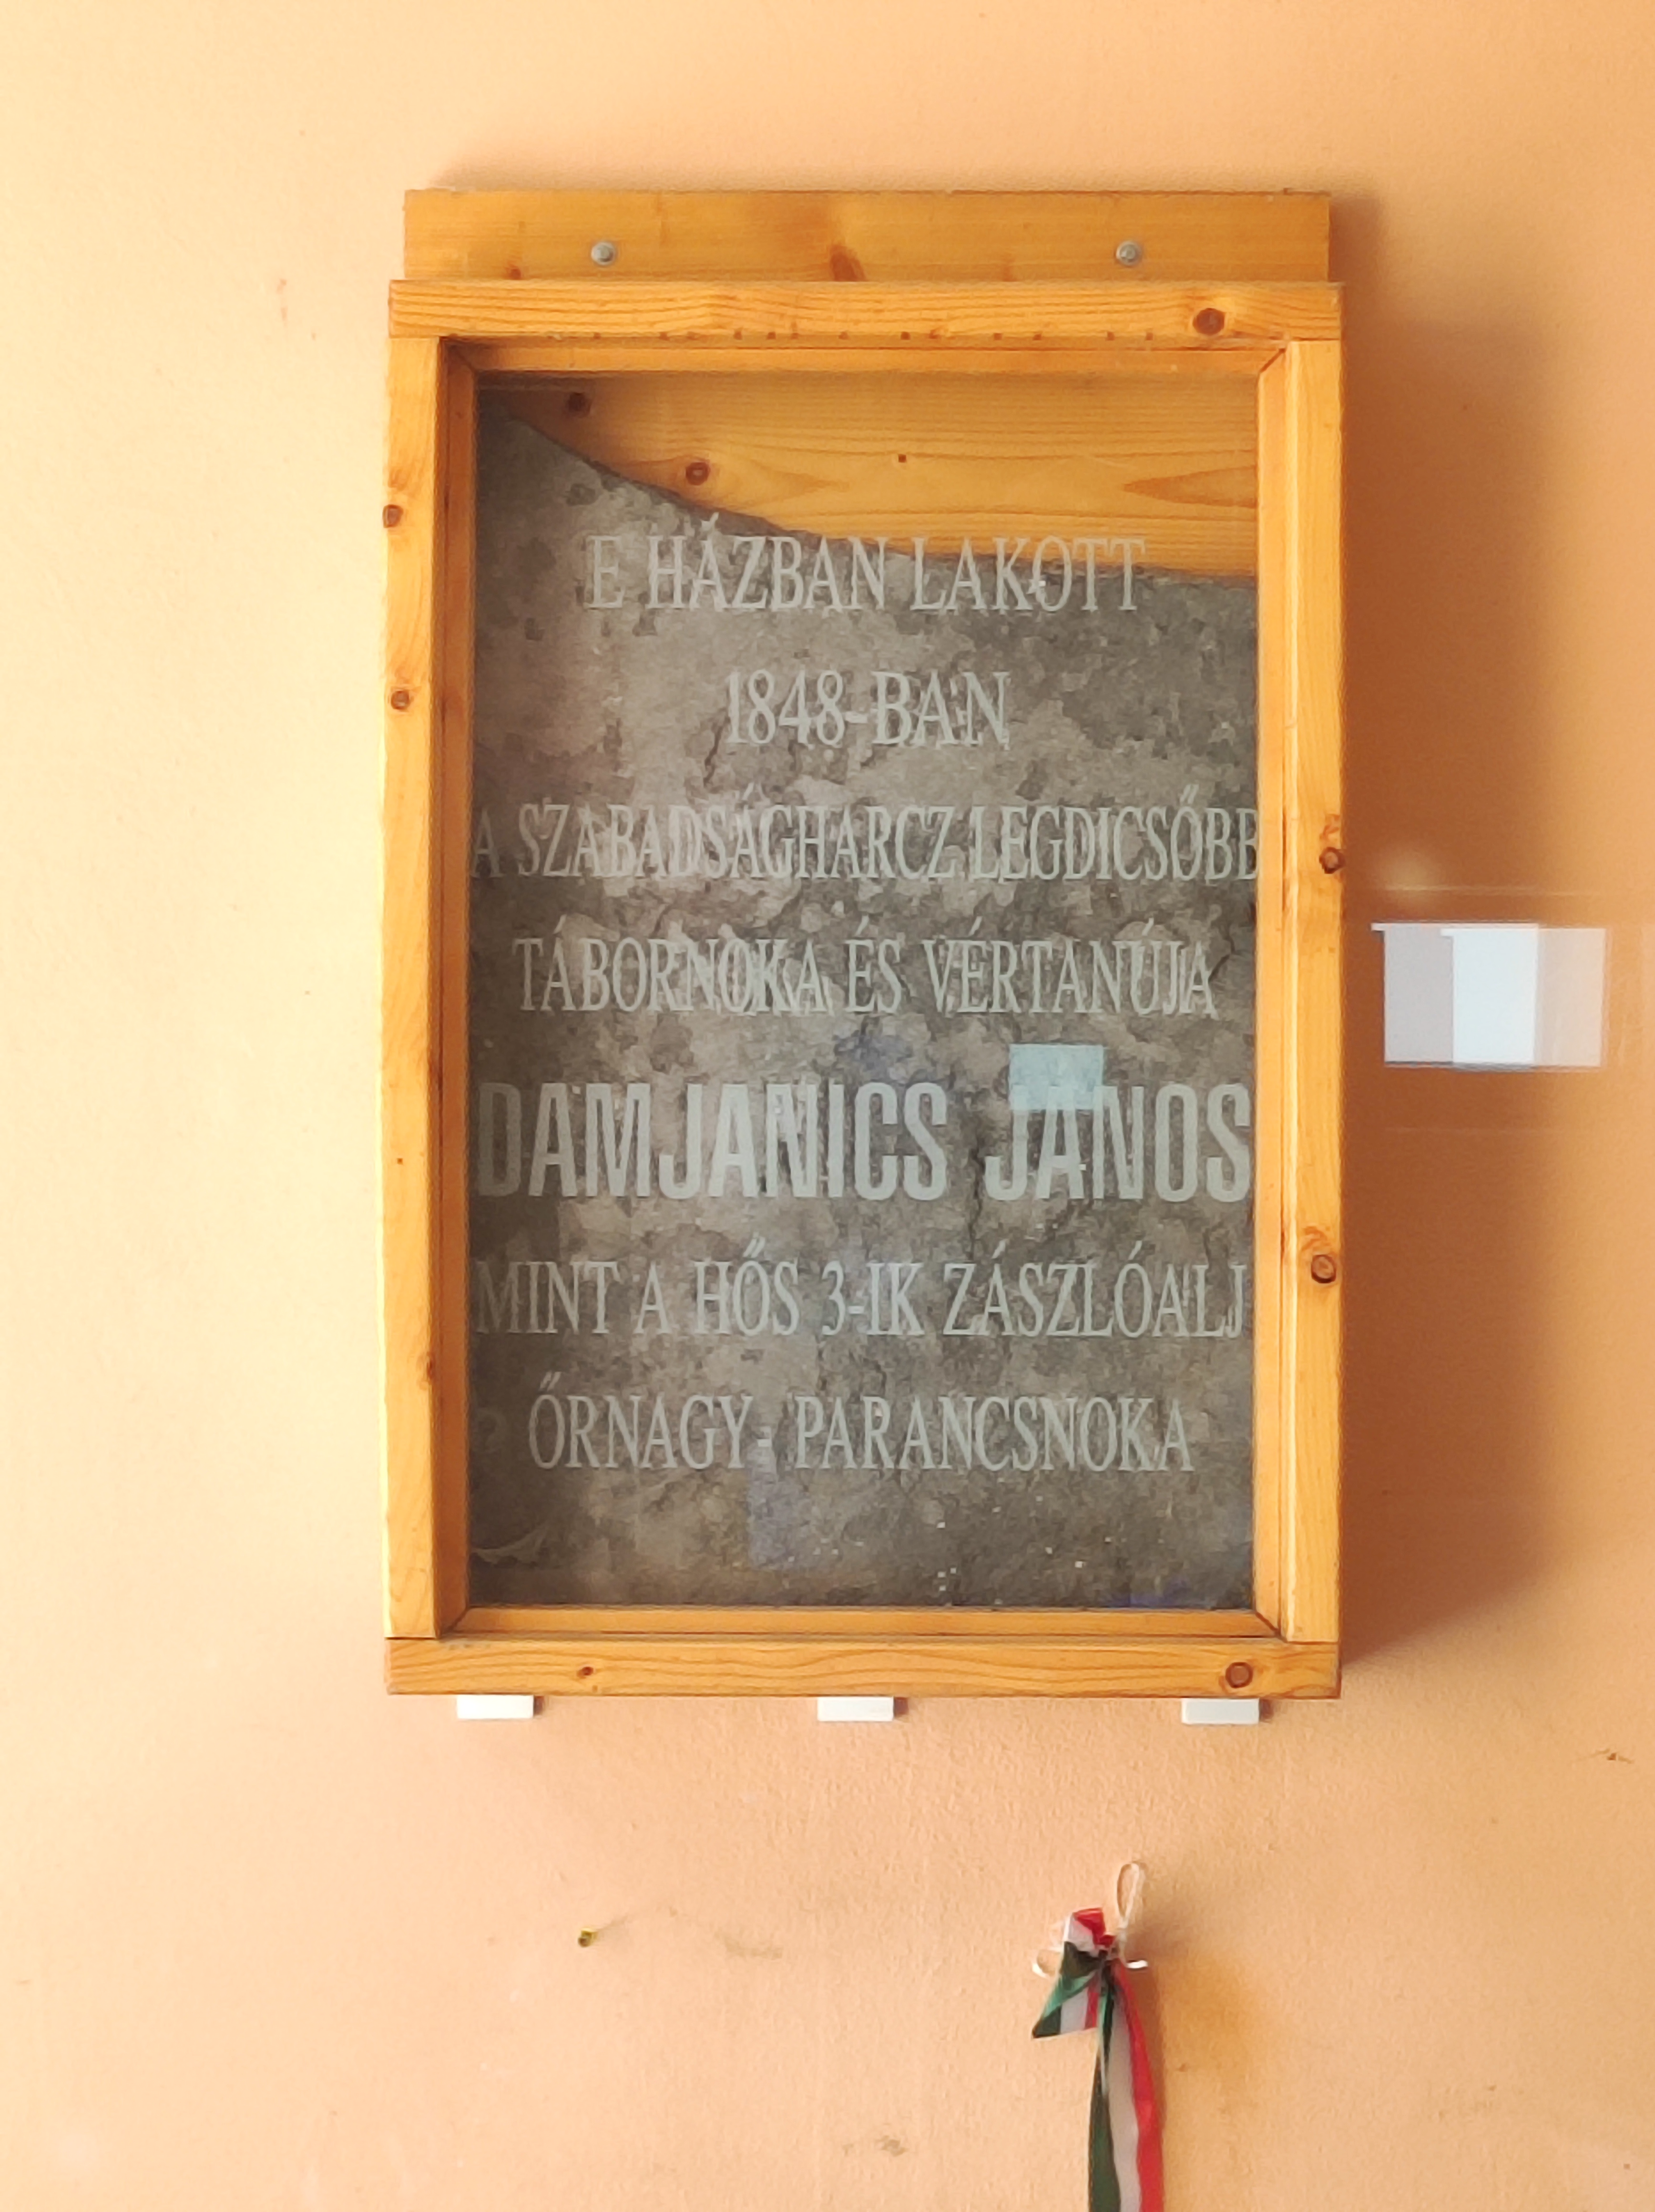 E HÁZBAN LAKOTT
1848-BAN
A SZABADSÁGHARCZ LEGDICSŐBB
TÁBORNOKA ÉS VÉRTANÚJA
DAMJANICS JÁNOS
MINT A HŐS 3-IK ZÁSZLÓALJ
ŐRNAGY- PARANCSNOKA